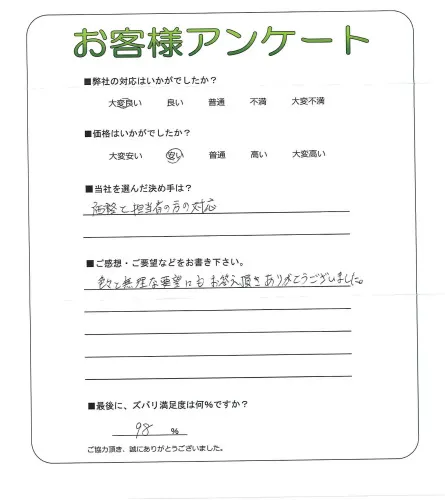 お客様アンケート
■弊社の対応はいかがでしたか？
大変良い 良い 普通 不満 大変不満
■価格はいかがでしたか？
大変安い 安い 普通 高い 大変高い
■当社を選んだ決め手は？
価格と担当者の方の対応
■ご感想・ご要望などをお書き下さい。
色々無理な要望にもお答え頂きありがとうございました。
■最後に、ズバリ満足度は何%ですか？
98 %
ご協力頂き、誠にありがとうございました。